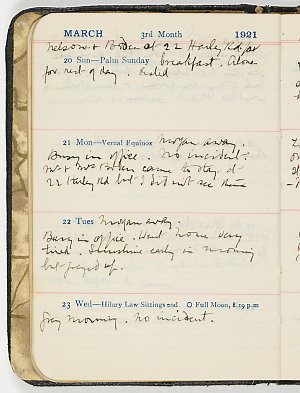 MARCH 3rd Month 1921
Nelson & at 22 Harley Rd for
20 Sun—Palm Sunday breakfast. Alone
for rest of day. Rested
21 Mon—Vernal Equinox Morgan away.
Busy in office. No incident.
Mr & Mrs came to stay at
22 Harley Rd but I did not see them
22 Tues Morgan away.
Busy in office. Went home very
tired. Sunshine early in morning
but greyed up.
23 Wed—Hilary Law Sittings end. O Full Moon, 8.19 p.m
Grey morning. No incident.